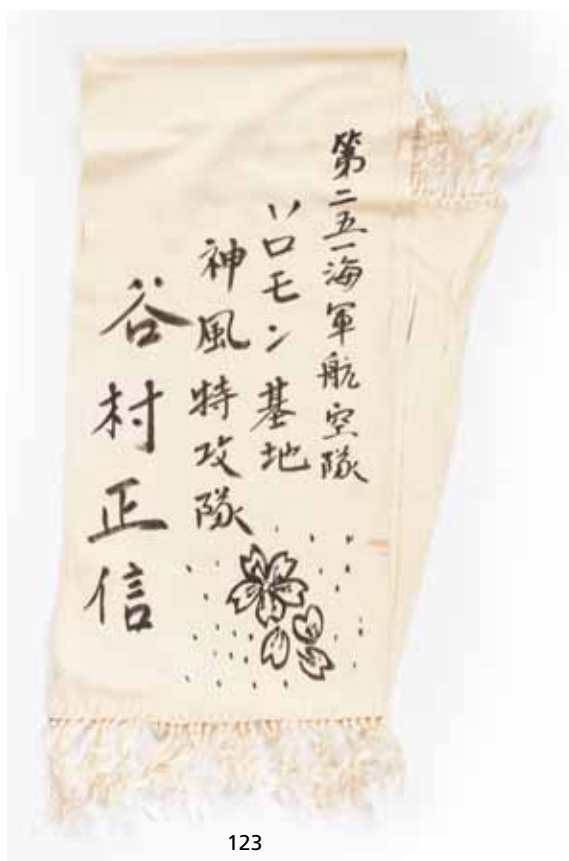 第二五一海軍航空隊
ソロモン基地
神風特攻隊
谷村正信
123